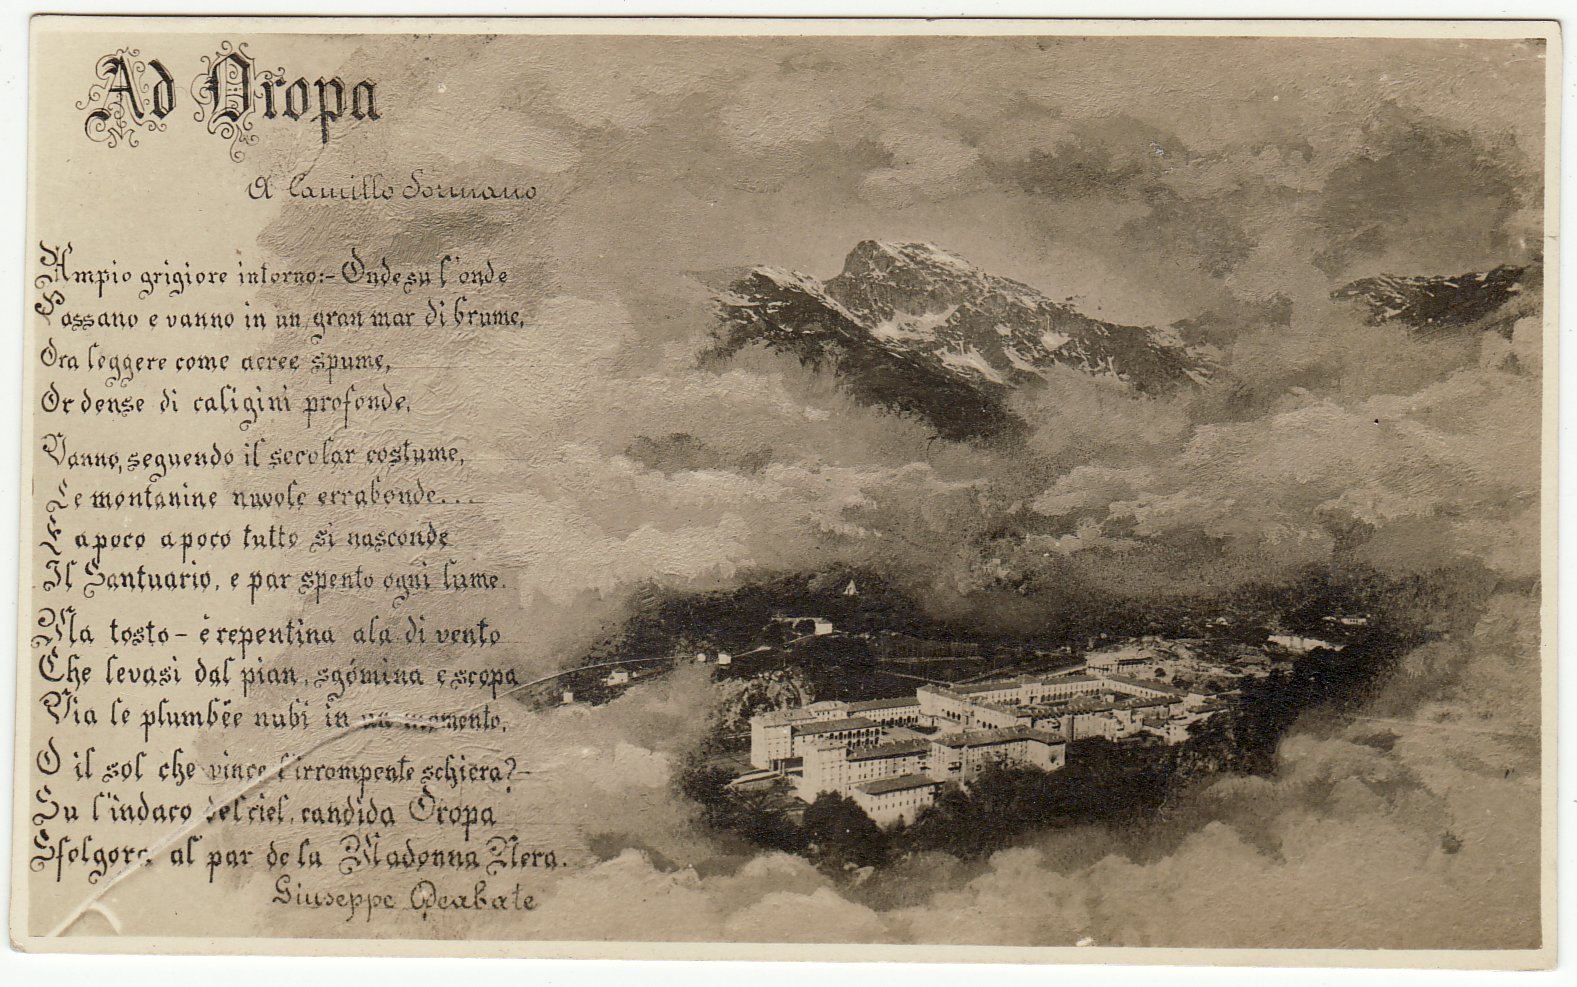 Ad Oropa
A Camillo Sormano
Ampio grigiore intorno:- Onde su l'onde
Passano e vanno in un gran mar di brume,
Ora leggere come aeree spume,
Or dense di caligini profonde.
Vanno, seguendo il secolar costume,
Le montanine nuvole errabonde...
E a poco a poco tutto si nasconde
Il Santuario, e par spento ogni lume.
Ma tosto - è repentina ala di vento
Che levasi dal pian, sgómina e scopa
Via le plumbëe nubi in un momento,
O il sol che vince l'irrompente schiera? -
Su l'indaco del ciel, candida Oropa
Sfolgora al par de la Madonna Nera.
Giuseppe Deabate